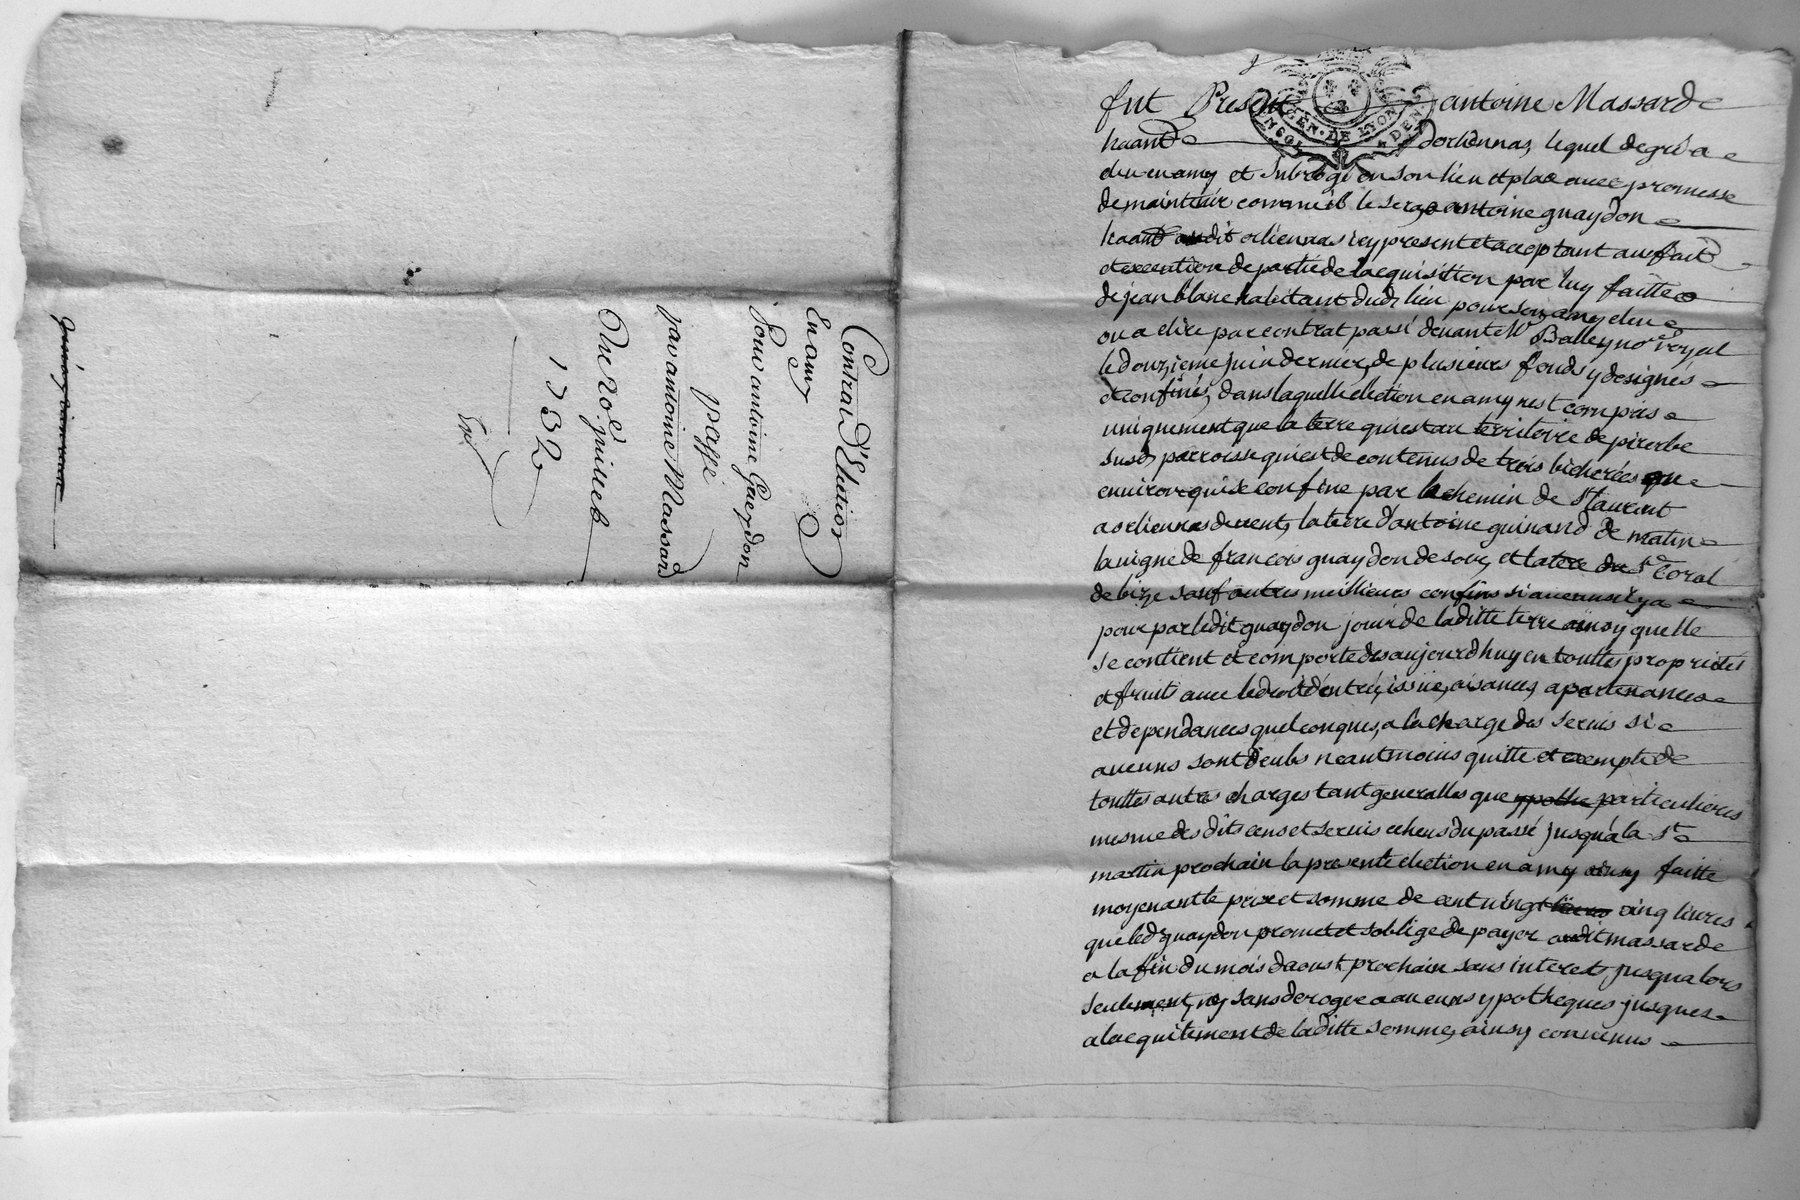 Contrat d'Election
En amy
Pour antoine Guaydon
passé
par antoine Massard
Du 20e juillet
1732
GEN · DE LYON
fut Present antoine Massard
dorliennas, lequel de gré a
eleu en amy et subrogé en son lieu et place avec promesse
de maintenir comme il le sera antoine guaydon
audit orliennas icy present et acceptant au fait
et execution de partie de lacquisition par luy faitte
de jean blanc habitant dudt lieu pour son amy eleu
ou a elire par contrat passé devant Me Balley nore royal
le douzieme juin dernier, de plusieurs fonds y designés
et confinés, dans laquelle election en amy nest compris
uniquement que la terre qui est au territoire de pirerbe
susd. parroisse qui est de contenus de trois bicherées
environ qui se confine par le chemin de st laurent
a orliennas de vent, la terre d'antoine guinand de matin
la vigne de francois guaydon de soir, et la terre du sr Coral
de bize sauf autres meillieurs confins si aucuns il y a
pour par ledit guaydon jouir de laditte terre ainsy quelle
se contient et comporte des aujourdhuy en touttes proprietes
et fruits avec le droit d'entrée, issüe, aisances, apartenances
et dependances quelconques, a la charge des servis si
aucuns sont deubs neautmoins quitte et exempte de
touttes autres charges tant generalles que particulieres
mesme des dits cens et servis echeus du passé jusqu'a la st
martin prochain la presente election en amy ainsy faitte
moyenant le prix et somme de cent vingt cinq livres
que ledt guaydon promet et soblige de payer audit massard
a la fin du mois daoust prochain sans interest jusqua lors
seulement, ny sans deroger a aucuns ypotheques jusques
a lacquitement de laditte somme, ainsy convenus